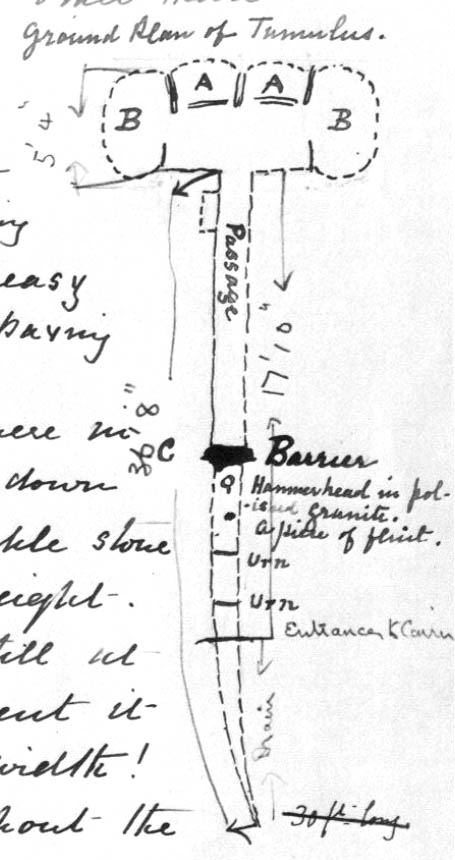 Ground Plan of Tumulus.
A A
B B
5' 4"
Passage
17' 10"
36' 8"
C Barrier
Hammerhead in pol-
-ished granite.
A piece of flint.
Urn
Urn
Entrance to Cairn
Drain
30 ft. long
easy
paving
were no
down
stone
eight.
till at
ent it
width!
hout the